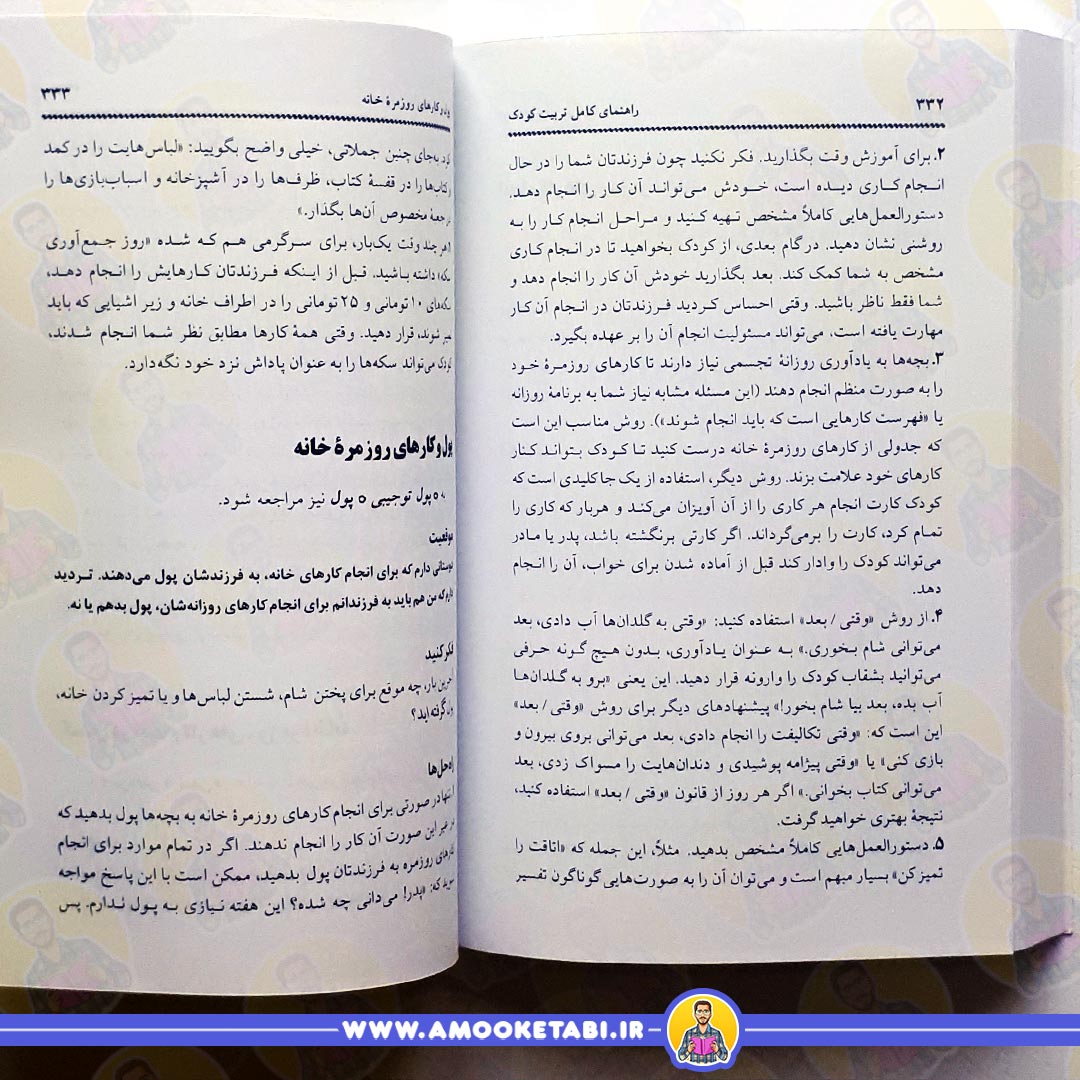 ۳۳۲
راهنمای کامل تربیت کودک
۲. برای آموزش وقت بگذارید. فکر نکنید چون فرزندتان شما را در حال
انجام کاری دیده است، خودش می‌تواند آن کار را انجام دهد.
دستورالعمل‌هایی کاملاً مشخص تهیه کنید و مراحل انجام کار را به
روشنی نشان دهید. درگام بعدی، از کودک بخواهید تا در انجام کاری
مشخص به شما کمک کند. بعد بگذارید خودش آن کار را انجام دهد و
شما فقط ناظر باشید. وقتی احساس کردید فرزندتان در انجام آن کار
مهارت یافته است، می‌تواند مسئولیت انجام آن را بر عهده بگیرد.
۳. بچه‌ها به یادآوری روزانهٔ تجسمی نیاز دارند تا کارهای روزمرهٔ خود
را به صورت منظم انجام دهند (این مسئله مشابه نیاز شما به برنامهٔ روزانه
یا «فهرست کارهایی است که باید انجام شوند»). روش مناسب این است
که جدولی از کارهای روزمرهٔ خانه درست کنید تا کودک بتواند کنار
کارهای خود علامت بزند. روش دیگر، استفاده از یک جاکلیدی است که
کودک کارت انجام هر کاری را از آن آویزان می‌کند و هربار که کاری را
تمام کرد، کارت را برمی‌گرداند. اگر کارتی برنگشته باشد، پدر یا مادر
می‌تواند کودک را وادار کند قبل از آماده شدن برای خواب، آن را انجام
دهد.
۴. از روش «وقتی / بعد» استفاده کنید: «وقتی به گلدان‌ها آب دادی، بعد
می‌توانی شام بخوری.» به عنوان یادآوری، بدون هیچ گونه حرفی
می‌توانید بشقاب کودک را وارونه قرار دهید. این یعنی «برو به گلدان‌ها
آب بده، بعد بیا شام بخور!» پیشنهادهای دیگر برای روش «وقتی / بعد»
این است که: «وقتی تکالیفت را انجام دادی، بعد می‌توانی بروی بیرون و
بازی کنی» یا «وقتی پیژامه پوشیدی و دندان‌هایت را مسواک زدی، بعد
می‌توانی کتاب بخوانی.» اگر هر روز از قانون «وقتی / بعد» استفاده کنید،
نتیجهٔ بهتری خواهید گرفت.
۵. دستورالعمل‌هایی کاملاً مشخص بدهید. مثلاً، این جمله که «اتاقت را
تمیز کن» بسیار مبهم است و می‌توان آن را به صورت‌هایی گوناگون تفسیر
و کارهای روزمرهٔ خانه
۳۳۳
به‌جای چنین جملاتی، خیلی واضح بگویید: «لباس‌هایت را در کمد
کتاب‌ها را در قفسهٔ کتاب، ظرف‌ها را در آشپزخانه و اسباب‌بازی‌ها را
مخصوص آن‌ها بگذار.»
هر چند وقت یک‌بار، برای سرگرمی هم که شده «روز جمع‌آوری
سکه» داشته باشید. قبل از اینکه فرزندتان کارهایش را انجام دهد،
سکه‌های ۱۰ تومانی و ۲۵ تومانی را در اطراف خانه و زیر اشیایی که باید
تمیز شوند، قرار دهید. وقتی همهٔ کارها مطابق نظر شما انجام شدند،
کودک می‌تواند سکه‌ها را به عنوان پاداش نزد خود نگه‌دارد.
پول و کارهای روزمرهٔ خانه
پول توجیبی ٥ پول نیز مراجعه شود.
موقعیت
دوستانی دارم که برای انجام کارهای خانه، به فرزندشان پول می‌دهند. تردید
دارم که من هم باید به فرزندانم برای انجام کارهای روزانه‌شان، پول بدهم یا نه.
فکر کنید
آخرین بار، چه موقع برای پختن شام، شستن لباس‌ها و یا تمیز کردن خانه،
پول گرفته‌اید؟
راه‌حل‌ها
تنها در صورتی برای انجام کارهای روزمرهٔ خانه به بچه‌ها پول بدهید که
در غیر این صورت آن کار را انجام ندهند. اگر در تمام موارد برای انجام
کارهای روزمره به فرزندتان پول بدهید، ممکن است با این پاسخ مواجه
که: «پدر! می‌دانی چه شده؟ این هفته نیازی به پول ندارم. پس
WWW.AMOOKETABI.IR